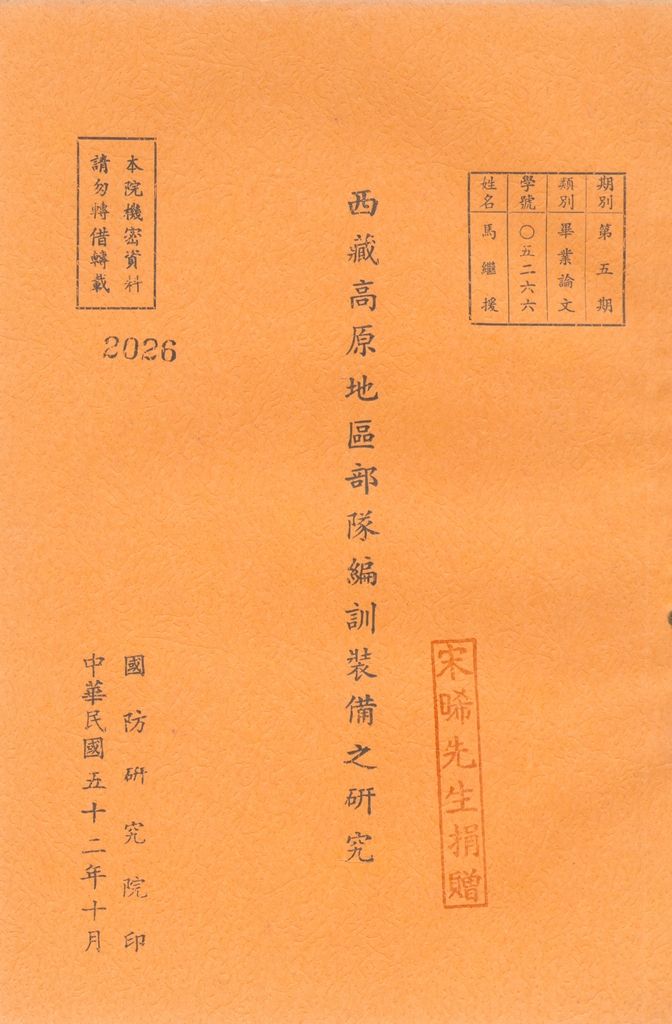 期別 第五期
類別 畢業論文
學號 〇五二六六
姓名 馬繼援
西藏高原地區部隊編訓裝備之研究
宋晞先生捐贈
本院機密資料
請勿轉借轉載
2026
國防研究院印
中華民國五十二年十月